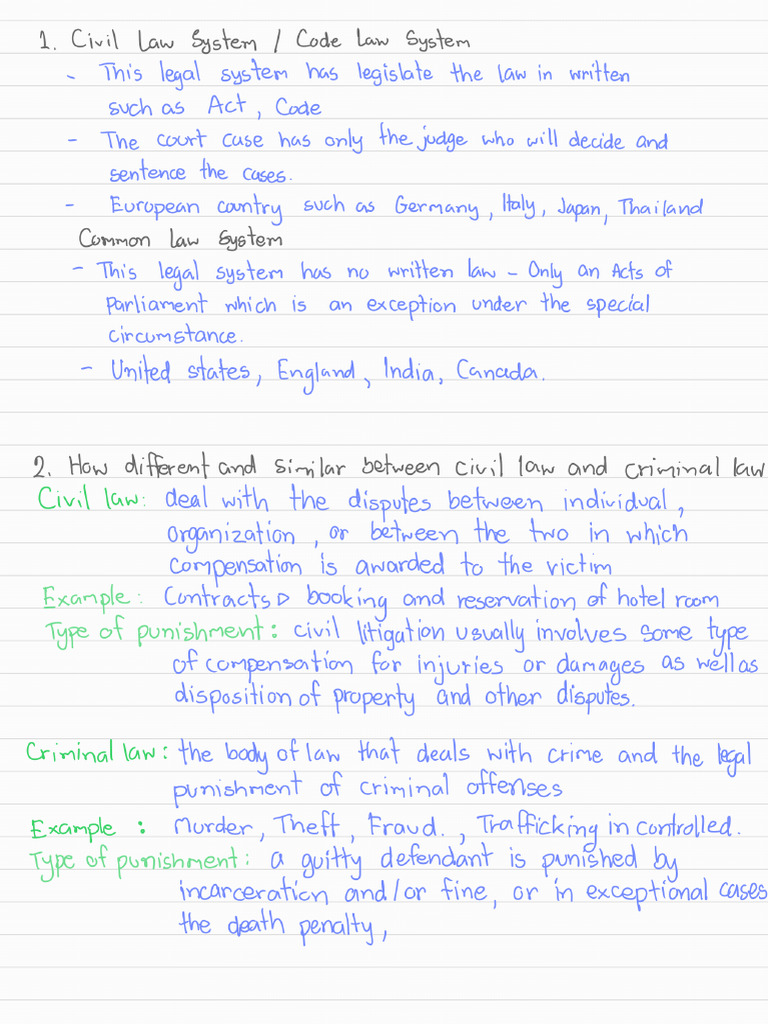 1. Civil Law System / Code Law System
- This legal system has legislate the law in written
such as Act, Code
- The court case has only the judge who will decide and
sentence the cases.
- European country such as Germany, Italy, Japan, Thailand
Common Law System
- This legal system has no written law - Only an Acts of
Parliament which is an exception under the special
circumstance.
- United states, England, India, Canada.
2. How different and similar between civil law and criminal law
Civil law: deal with the disputes between individual,
organization, or between the two in which
compensation is awarded to the victim
Example: Contracts ▷ booking and reservation of hotel room
Type of punishment: civil litigation usually involves some type
of compensation for injuries or damages as well as
disposition of property and other disputes.
Criminal law: the body of law that deals with crime and the legal
punishment of criminal offenses
Example: Murder, Theft, Fraud., Trafficking in controlled.
Type of punishment: a guitty defendant is punished by
incarceration and/or fine, or in exceptional cases
the death penalty,